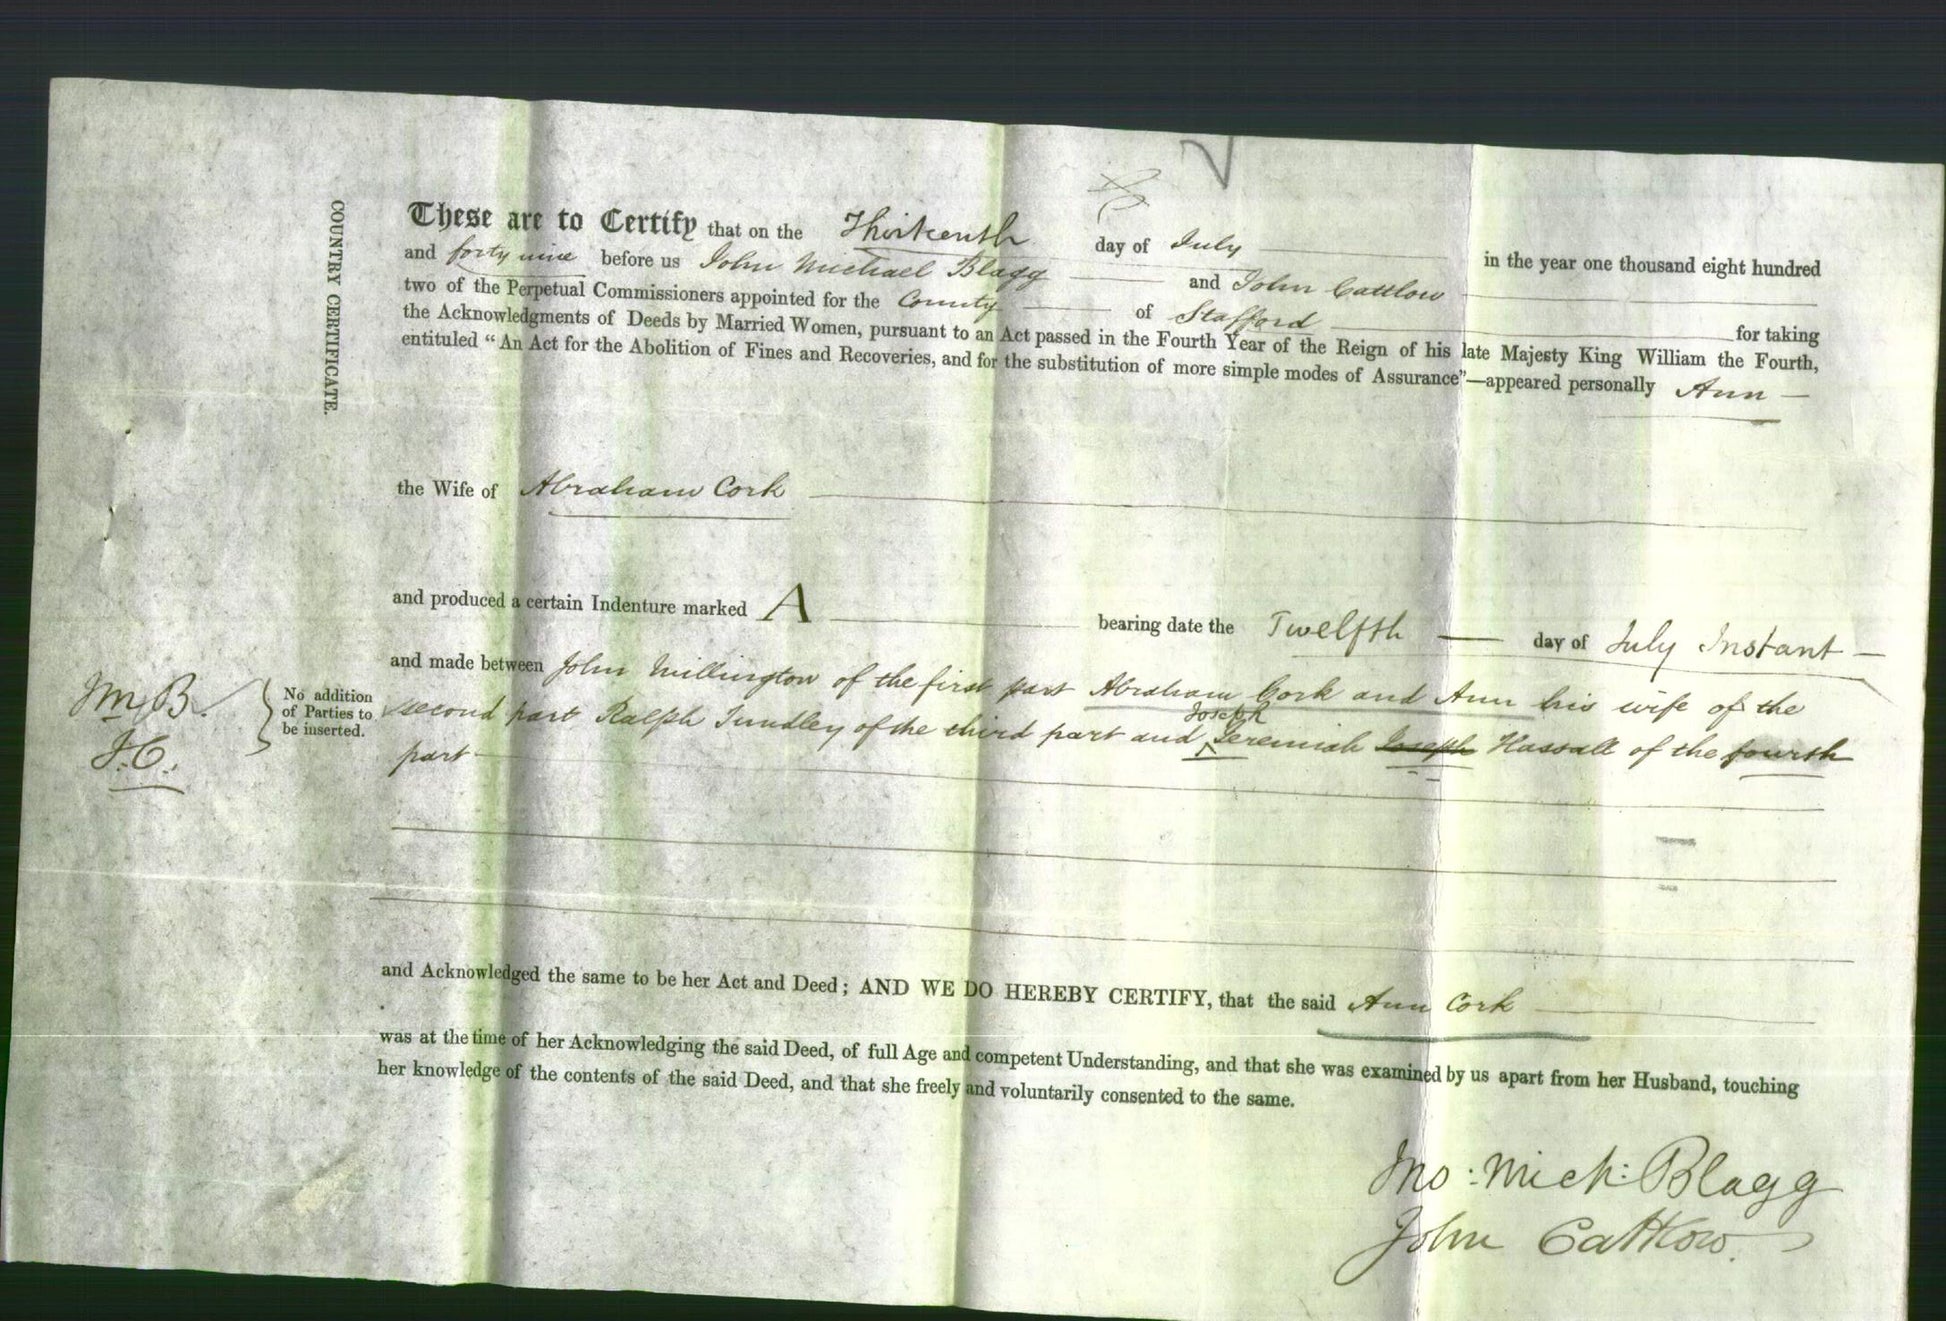 COUNTRY CERTIFICATE.
These are to Certify that on the Thirteenth day of July in the year one thousand eight hundred
and forty nine before us John Michael Blagg and John Cattlow
two of the Perpetual Commissioners appointed for the County of Stafford for taking
the Acknowledgments of Deeds by Married Women, pursuant to an Act passed in the Fourth Year of the Reign of his late Majesty King William the Fourth,
entituled "An Act for the Abolition of Fines and Recoveries, and for the substitution of more simple modes of Assurance"—appeared personally Ann
the Wife of Abraham Cork
and produced a certain Indenture marked A bearing date the Twelfth day of July Instant
and made between John Millington of the first part Abraham Cork and Ann his wife of the
Joseph
second part Ralph Tundley of the third part and ^ Jeremiah Joseph Hassall of the fourth
part
JmB.
J.C.
No addition
of Parties to
be inserted.
and Acknowledged the same to be her Act and Deed; AND WE DO HEREBY CERTIFY, that the said Ann Cork
was at the time of her Acknowledging the said Deed, of full Age and competent Understanding, and that she was examined by us apart from her Husband, touching
her knowledge of the contents of the said Deed, and that she freely and voluntarily consented to the same.
Jno: Mich: Blagg
John Cattlow.